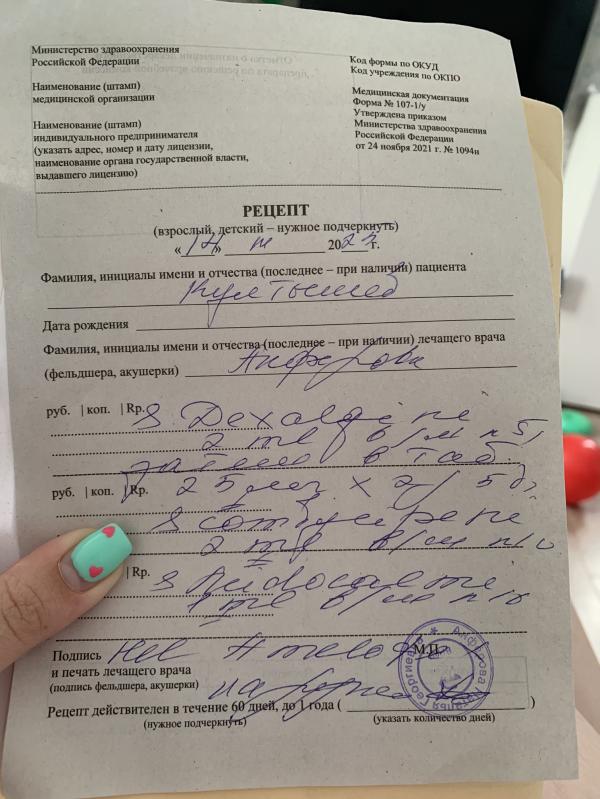 Министерство здравоохранения
Российской Федерации
Наименование (штамп)
медицинской организации
Наименование (штамп)
индивидуального предпринимателя
(указать адрес, номер и дату лицензии,
наименование органа государственной власти,
выдавшего лицензию)
Код формы по ОКУД
Код учреждения по ОКПО
Медицинская документация
Форма № 107-1/у
Утверждена приказом
Министерства здравоохранения
Российской Федерации
от 24 ноября 2021 г. № 1094н
РЕЦЕПТ
(взрослый, детский – нужное подчеркнуть)
« » 20 г.
Фамилия, инициалы имени и отчества (последнее – при наличии) пациента
Дата рождения
Фамилия, инициалы имени и отчества (последнее – при наличии) лечащего врача
(фельдшера, акушерки) Анферова
руб. | коп. | Rp. S. Dexalgine
2 ml в/м n 5,
затем в таб.
руб. | коп. | Rp. 25 мг. x 2/ 5 д
2 ml в/м n 10
| Rp.
1 ml в/м n 10
Подпись М.П.
и печать лечащего врача
(подпись фельдшера, акушерки)
Рецепт действителен в течение 60 дней, до 1 года ( )
(нужное подчеркнуть) (указать количество дней)